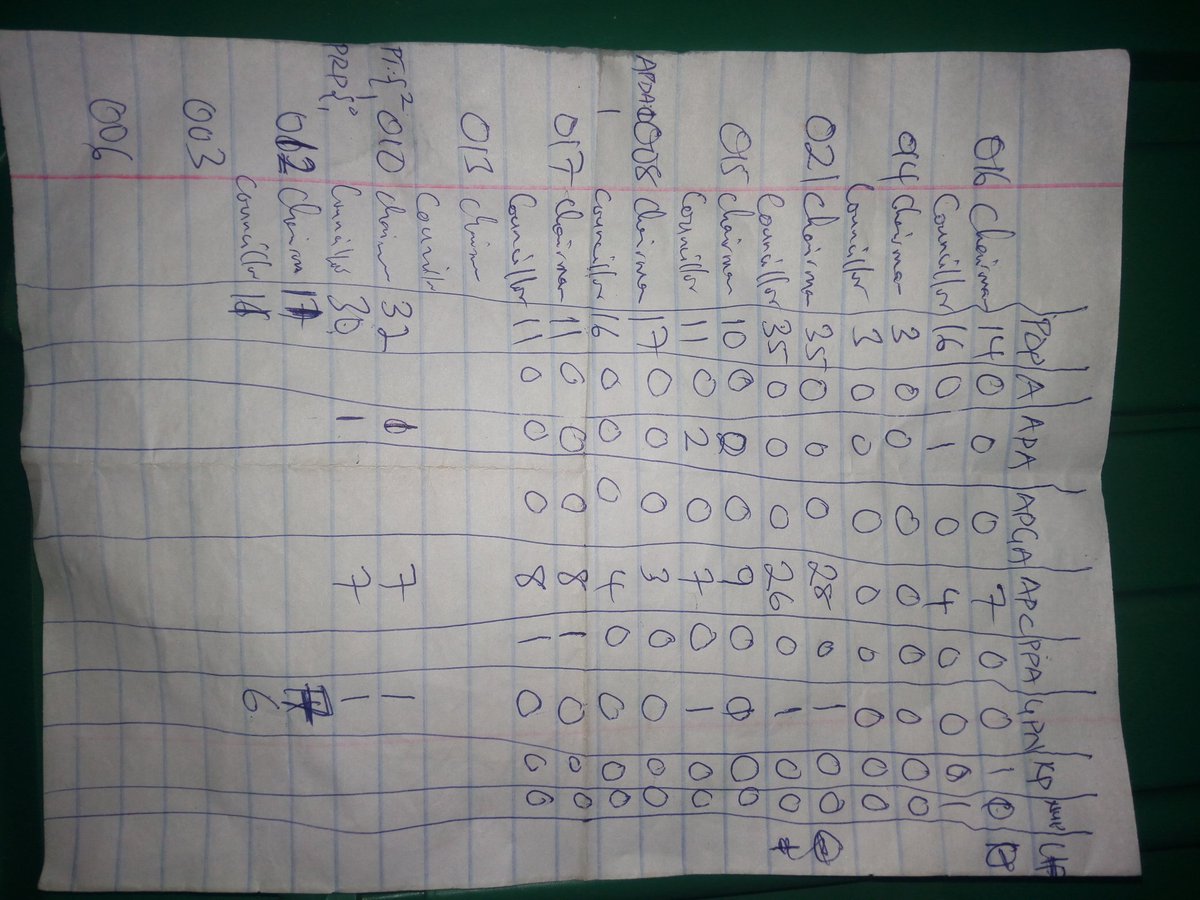 PDP A APA APGA APC PPA GPN KP NNPP
016 Chairman 14 0 0 0 7 0 0 1 0 0
Councillor 16 0 1 0 4 0 0 0 1
014 Chairman 3 0 0 0 0 0 0 0 0
Councillor 3 0 0 0 0 0 0 0 0
021 Chairman 35 0 0 0 28 0 1 0 0
Councillor 35 0 0 0 26 0 1 0 0
015 Chairman 10 0 2 0 9 0 0 0 0
Councillor 11 0 2 0 7 0 1 0 0
008 Chairman 17 0 0 0 3 0 0 0 0
1 Councillor 16 0 0 0 4 0 0 0 0
017 Chairman 11 0 0 0 8 1 0 0 0
Councillor 11 0 0 0 8 1 0 0 0
013 Chairm
Councillor
010 Chairm 32 7 1
PRP Councillor 30 1 7 1
012 Chairm 17
Councillor 6
003
006